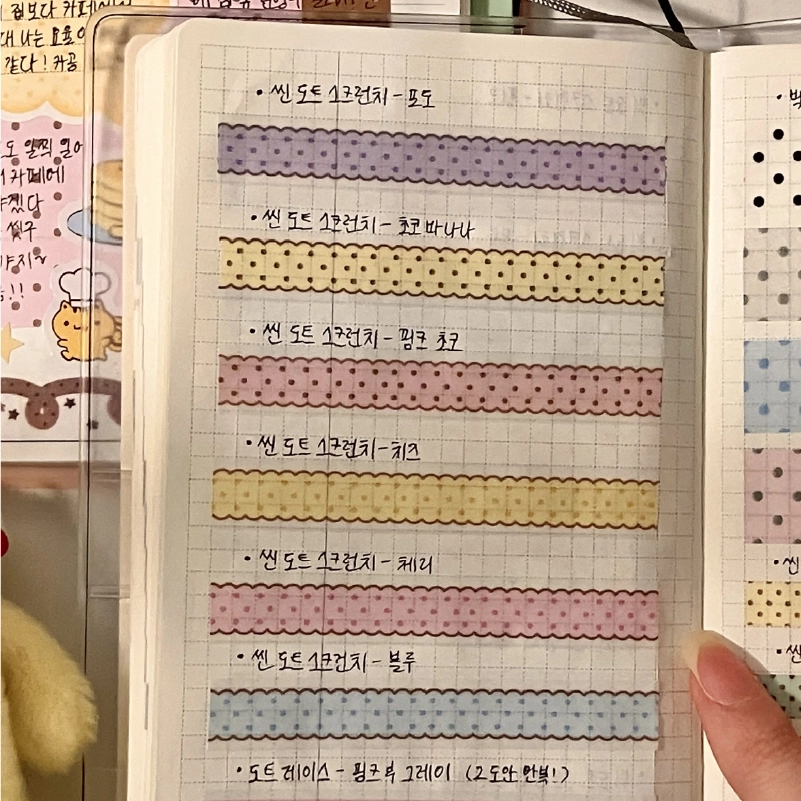 집보다 카페에서
대 나는 요율이
같다! 카공
도 일찍 일어
카페에
야겠다
씻구
야지~
!!
• 씬 도트 스크런치 - 포도
• 씬 도트 스크런치 - 초코 바나나
• 씬 도트 스크런치 - 핑크 초코
• 씬 도트 스크런치 - 치즈
• 씬 도트 스크런치 - 체리
• 씬 도트 스크런치 - 블루
• 도트 레이스 - 핑크 & 그레이 (2도안 반복!)
• 빅
• 씬
• 씬